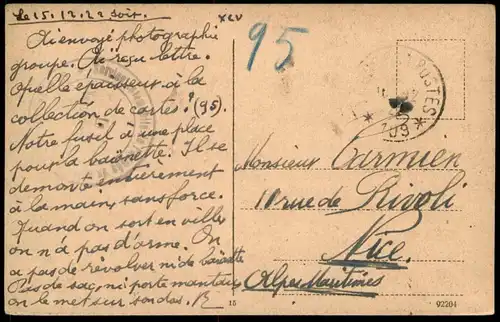 Le 15.12.22 Soir.
XCV
95
Ai envoyé photographie
groupe. Ai reçu lettre.
Quelle épaisseur à la
collection de cartes? (95).
Notre fusil à une place
pour la baïonette. Il se
demonte entièrement
à la main, sans force.
Quand on sort en ville
on n'a pas d'arme. On
a pas de révolver ni de baïonette
Pas de sac, ni porte manteau
on le met sur son dos. R
POSTES
* 209 *
Monsieur Carmien
11 rue de Rivoli
Nice.
Alpes Maritimes
15
92204